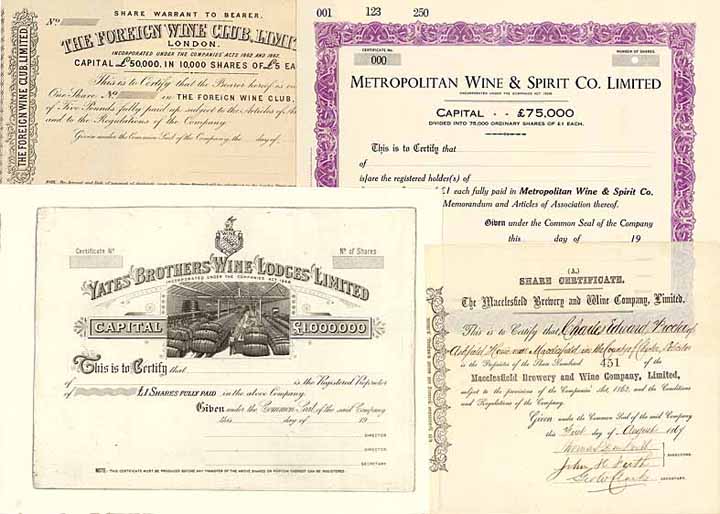 SHARE WARRANT TO BEARER.
No
THE FOREIGN WINE CLUB, LIMIT
LONDON.
INCORPORATED UNDER THE COMPANIES' ACTS 1862 AND 1867.
CAPITAL £50,000, IN 10,000 SHARES OF £5 EA
This is to Certify that the Bearer hereof is
One Share No in THE FOREIGN WINE CLUB,
of Five Pounds fully paid up, subject to the Articles of
and to the Regulations of the Company.
Given under the Common Seal of the Company, the day of
THE FOREIGN WINE CLUB, LIMITED.
001 123 250
CERTIFICATE No. NUMBER OF SHARES
000
METROPOLITAN WINE & SPIRIT CO. LIMITED
CAPITAL . . £75,000
DIVIDED INTO 75,000 ORDINARY SHARES OF £1 EACH.
This is to Certify that
of
is/are the registered holder(s) of
£1 each fully paid in Metropolitan Wine & Spirit Co.
Memorandum and Articles of Association thereof.
Given under the Common Seal of the Company
this day of 19
WINE
Certificate No No of Shares
YATES BROTHERS WINE LODGES LIMITED
INCORPORATED UNDER THE COMPANIES ACT 1908
CAPITAL £1,000000
This is to Certify that
of is the Registered Proprietor
of £1 SHARES FULLY PAID in the above Company.
Given under the Common Seal of the said Company
this day of 19
DIRECTOR
DIRECTOR
SECRETARY
NOTE: THIS CERTIFICATE MUST BE PRODUCED BEFORE ANY TRANSFER OF THE ABOVE SHARES OR PORTION THEREOF CAN BE REGISTERED
SHARE CERTIFICATE.
The Macclesfield Brewery and Wine Company, Limited.
This is to Certify that, Charles Edward of
Macclesfield in the County of
is the Proprietor of the Share Numbered 451 of the
Macclesfield Brewery and Wine Company, Limited,
subject to the provision of the Companies' Act, 1862, and the Conditions
and Regulations of the Company.
Given under the Common Seal of the said Company
this First day of August 1867
Thomas
John
DIRECTORS.
SECRETARY.